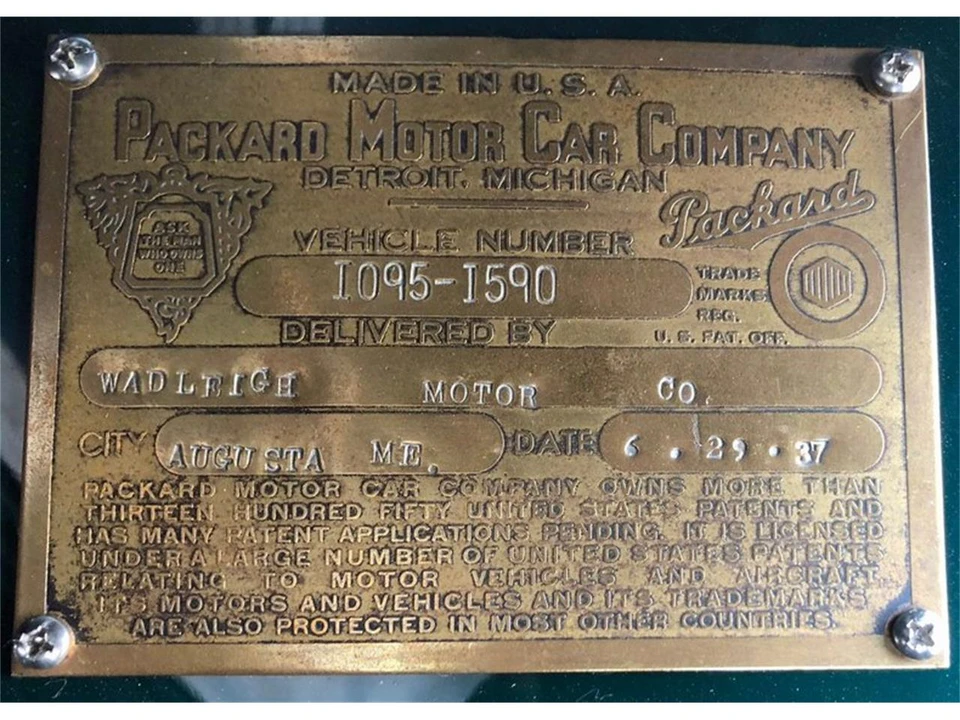 MADE IN U.S.A.
PACKARD MOTOR CAR COMPANY
DETROIT, MICHIGAN
Packard
ASK
THE MAN
WHO OWNS
ONE
VEHICLE NUMBER
1095-1590
TRADE
MARKS
REG.
U.S. PAT. OFF.
DELIVERED BY
WADLEIGH MOTOR CO.
CITY AUGUSTA ME. DATE 6.29.37
PACKARD MOTOR CAR COMPANY OWNS MORE THAN
THIRTEEN HUNDRED FIFTY UNITED STATES PATENTS AND
HAS MANY PATENT APPLICATIONS PENDING. IT IS LICENSED
UNDER A LARGE NUMBER OF UNITED STATES PATENTS
RELATING TO MOTOR VEHICLES AND AIRCRAFT
ITS MOTORS AND VEHICLES AND ITS TRADEMARKS
ARE ALSO PROTECTED IN MOST OTHER COUNTRIES.